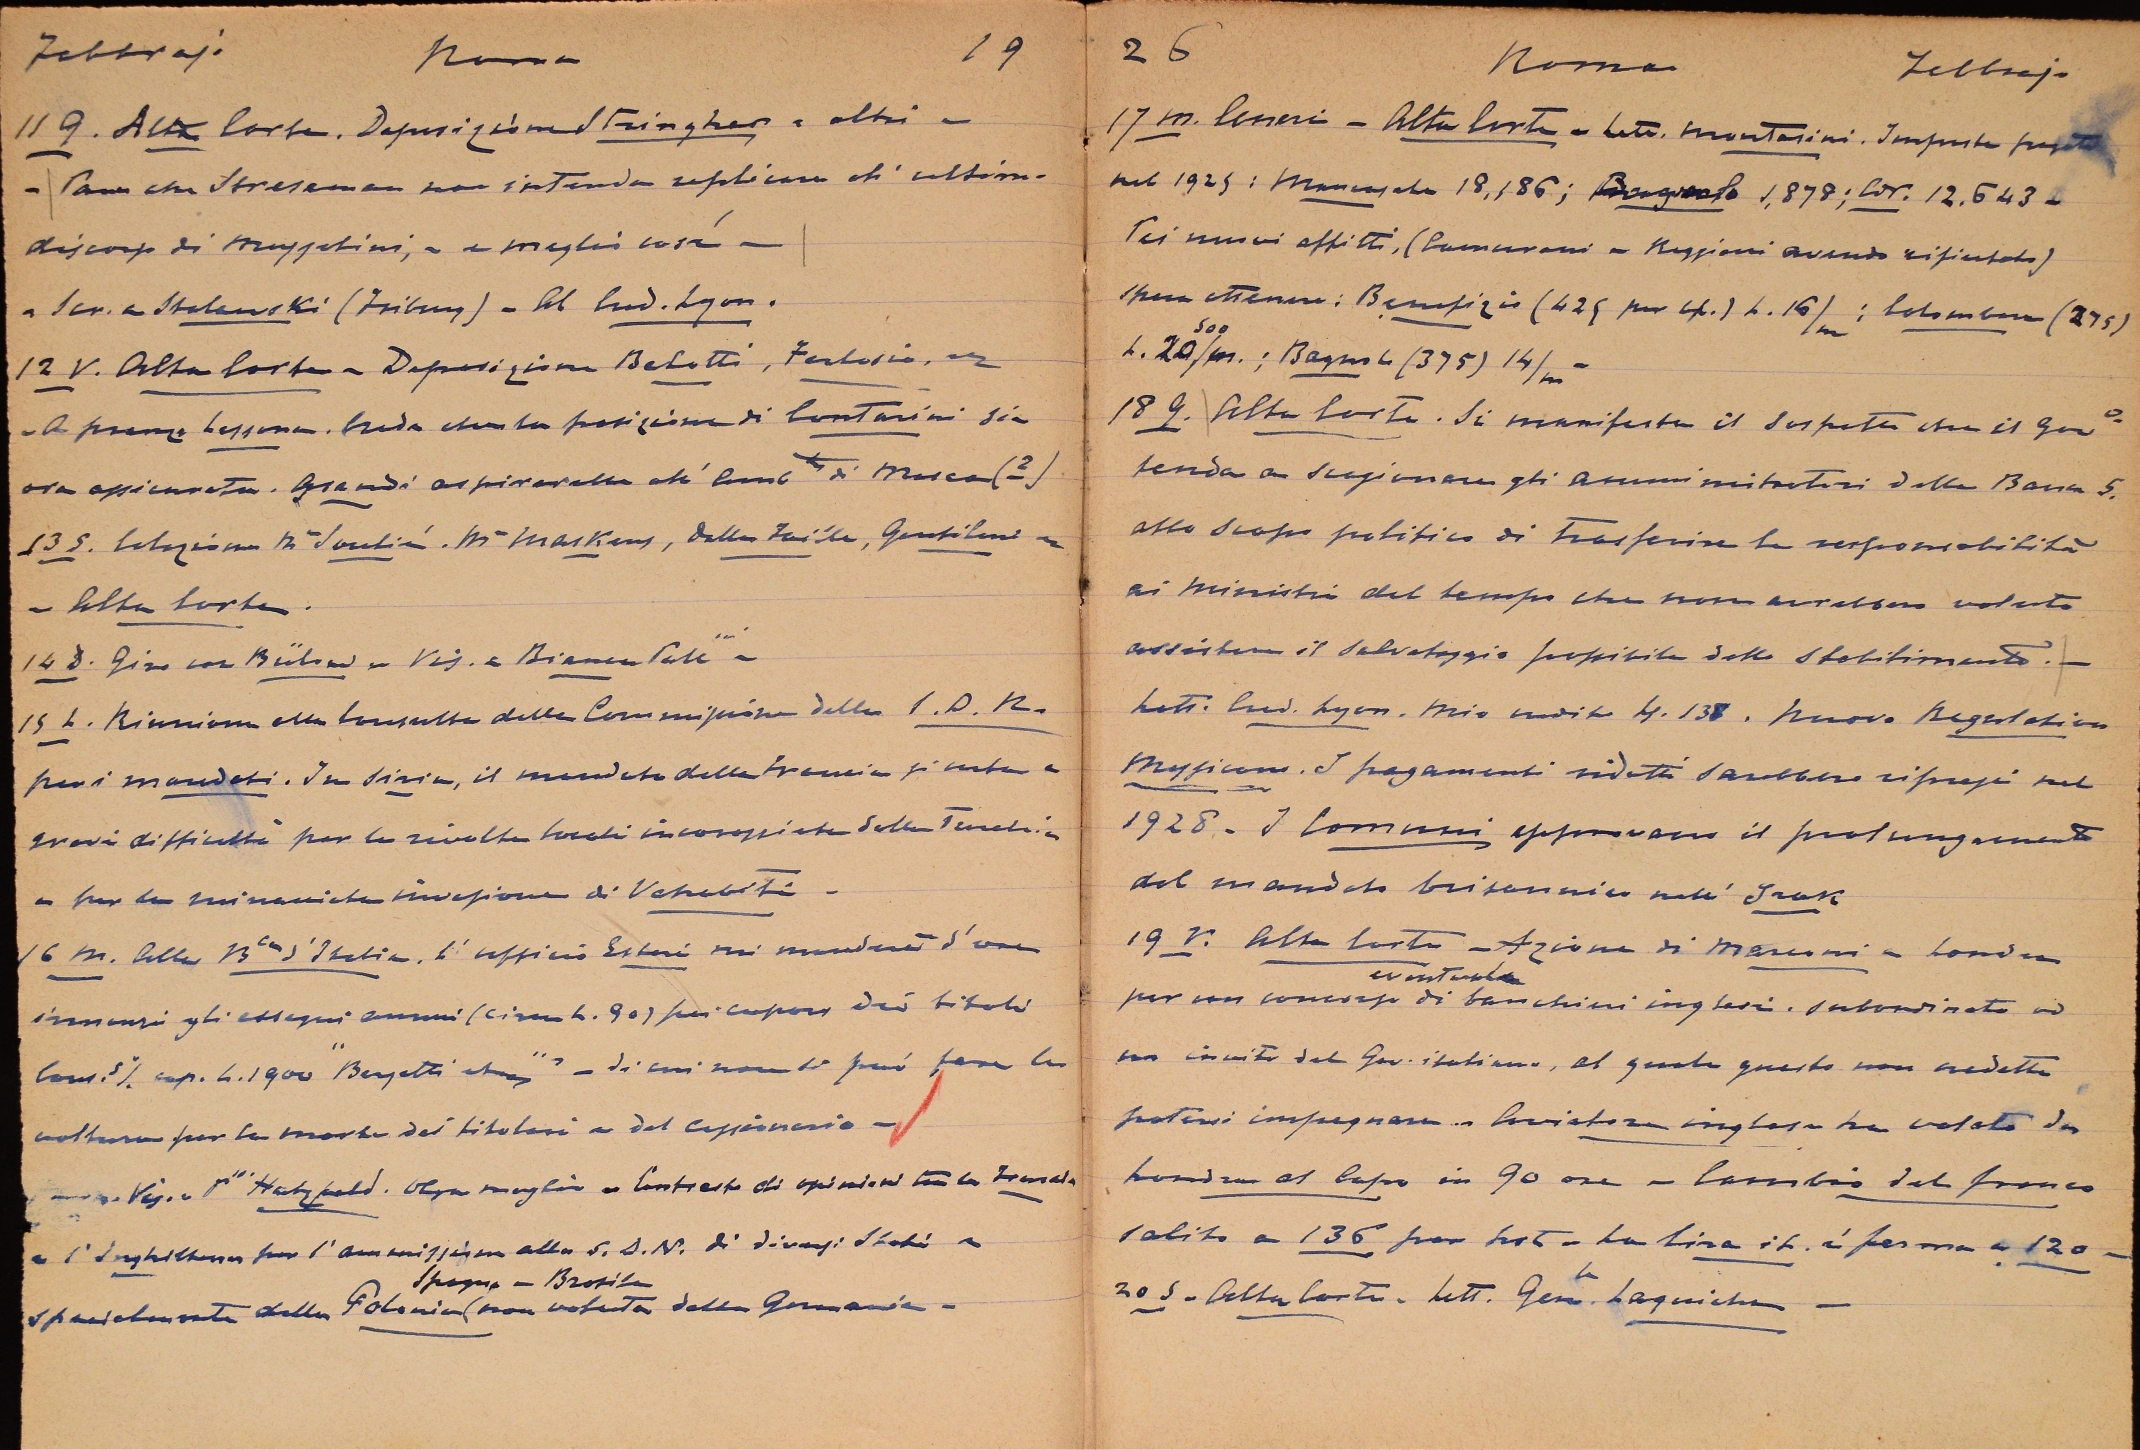 Febbrajo Roma 19
11 G. Alta Corte. Deposizione Stringher e altri –
– Pare che Streseman non intenda replicare all'ultimo
discorso di Mussolini, – e meglio così –
– Scr. a (Friburg) – Al Cred. Lyon.
12 V. Alta Corte – Deposizione Belotti,
– A pranzo Lessona. Crede che la posizione di Contarini sia
ora assicurata. Grandi aspirerebbe all' Amb ta di Mosca (?)
13 S. Colazione
– Alta Corte.
14 D. Giro con Bülow – Vis. a Bianca
15 L. Riunione alla Consulta della Commissione della S. D. N.
per i mandati. In Siria, il mandato della Francia si urta a
gravi difficoltà per le rivolte locali incoraggiate dalla Turchia
e per la minacciata invasione di Vahabiti –
16 M. Alla B ca d'Italia. L'ufficio Esteri mi manderà d'ora
innanzi gli assegni annui (circa L. 90) pei cupons dei titoli
Cons. 5% cap. L. 1900 " – di cui non si può fare la
voltura per la morte dei titolari e del cessionario –
– Vis. a Hatzfeld. Olga meglio – Contrasto di opinioni tra la Francia
e l'Inghilterra per l'ammissione alla S. D. N. di diversi Stati e
Spagna – Brasile
specialmente della Polonia (non voluta dalla Germania –
26 Roma Febbrajo
17 M. Ceneri – Alta Corte – Lett. Montasini. Imposte pagate
nel 1925: 18,186; 5,878; Cor. 12.643 –
Pei nuovi affitti, (Camurani e Reggiani avendo rifiutato)
spera ottenere: Benefizio (425 per ) L. 16/m; Colombara (275)
500
L. 20/m.; (375) 14/m –
18 G. Alta Corte. Si manifesta il sospetto che il Gov o
tenda a scagionare gli amministratori della Banca S.
allo scopo politico di trasferire la responsabilità
ai Ministri del tempo che non avrebbero voluto
assistere il salvataggio possibile dello Stabilimento. –
Lett. Cred. Lyon. Mio credito
Messicano. I pagamenti ridotti sarebbero ripresi nel
1928 – I Comuni approvano il prolungamento
del mandato britannico nell' Irak
19 V. Alta Corte – Azione di Marconi a Londra
eventuale
per un concorso di banchieri inglesi. subordinato ad
un invito del Gov. italiano, al quale questo non credette
potersi impegnare – Aviatore inglese ha volato da
Londra al Capo in 90 ore – Cambio del franco
salito a 136 per – La lira it. è ferma a 120 –
20 S – Alta Corte – Lett. Gen le